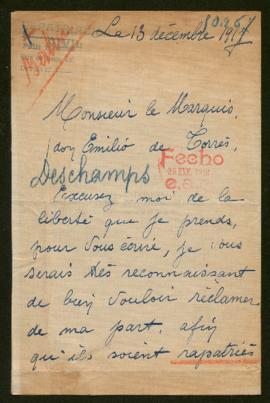 Le 13 décembre 1917
Monsieur le Marquis,
don Emilio de Torrès,
Fecho
Deschamps
Excusez moi de la
liberté que je prends,
pour vous écrire, je vous
serais très reconnaissant
de bien vouloir réclamer
de ma part, afin
qu'ils soient rapatriés